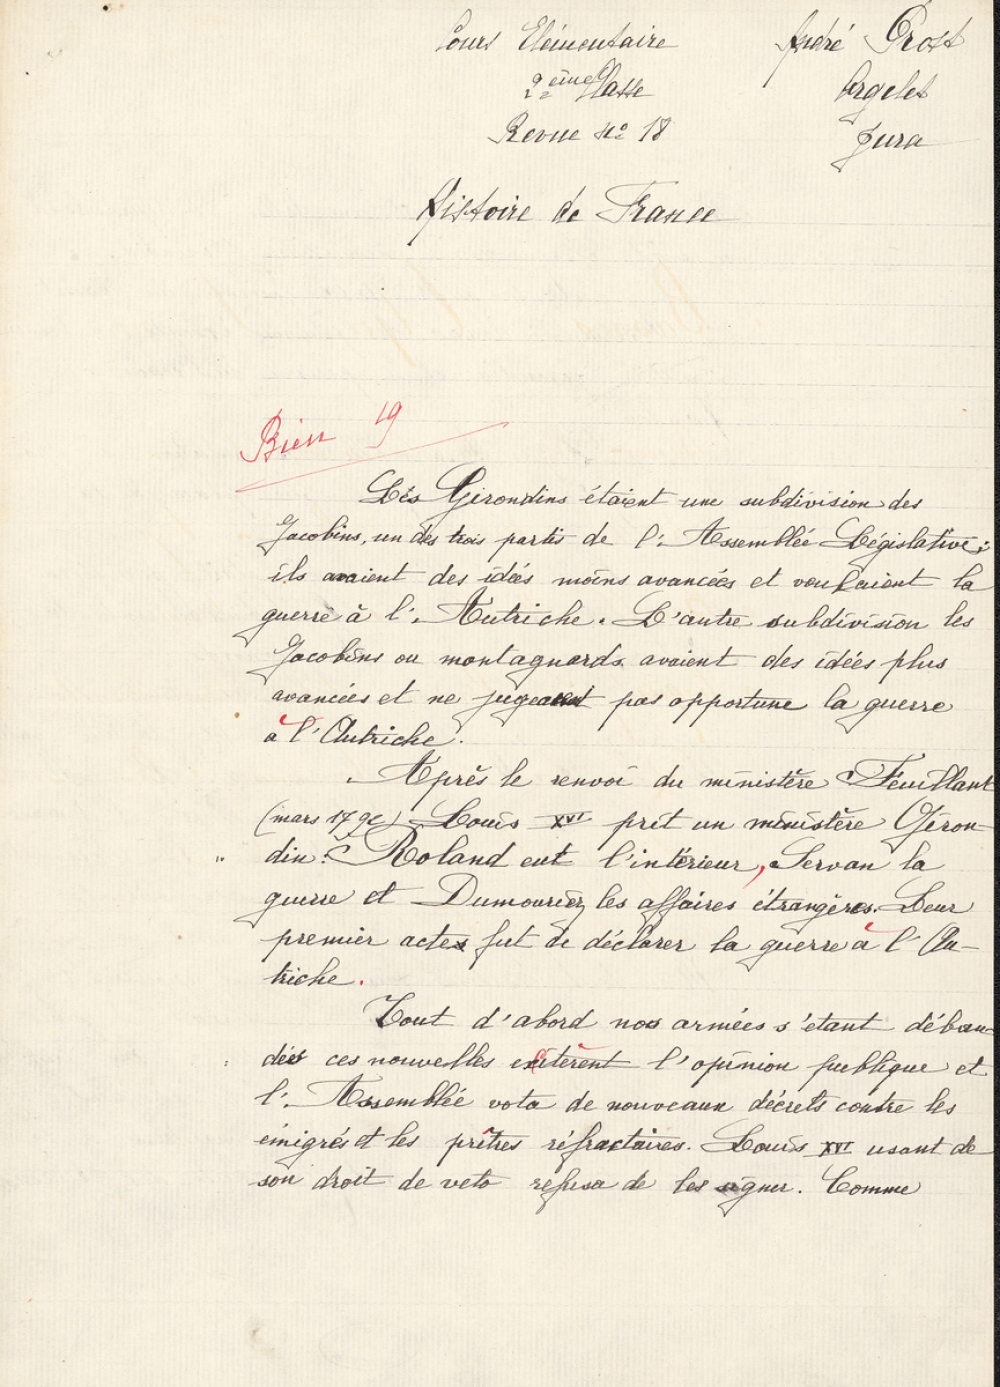 Cours Elémentaire
André Prost
2ème Classe
Orgelet
Revue No 18
Jura
Histoire de France
Bien 19
Les Girondins étaient une subdivision des
Jacobins, un des trois partis de l'Assemblée Législative;
ils avaient des idées moins avancées et voulaient la
guerre à l'Autriche. L'autre subdivision les
Jacobins ou montagnards avaient des idées plus
avancées et ne jugeaient pas opportune la guerre
à l'Autriche.
Après le renvoi du ministère Feuillant
(mars 1792) Louis XVI prit un ministère Giron-
din: Roland eut l'intérieur, Servan la
guerre et Dumouriez les affaires étrangères. Leur
premier acte fut de déclarer la guerre à l'Au-
triche.
Tout d'abord nos armées s'étant déban-
dées ces nouvelles excitèrent l'opinion publique et
l'Assemblée vota de nouveaux décrets contre les
émigrés et les prêtres réfractaires. Louis XVI usant de
son droit de veto refusa de les signer. Comme